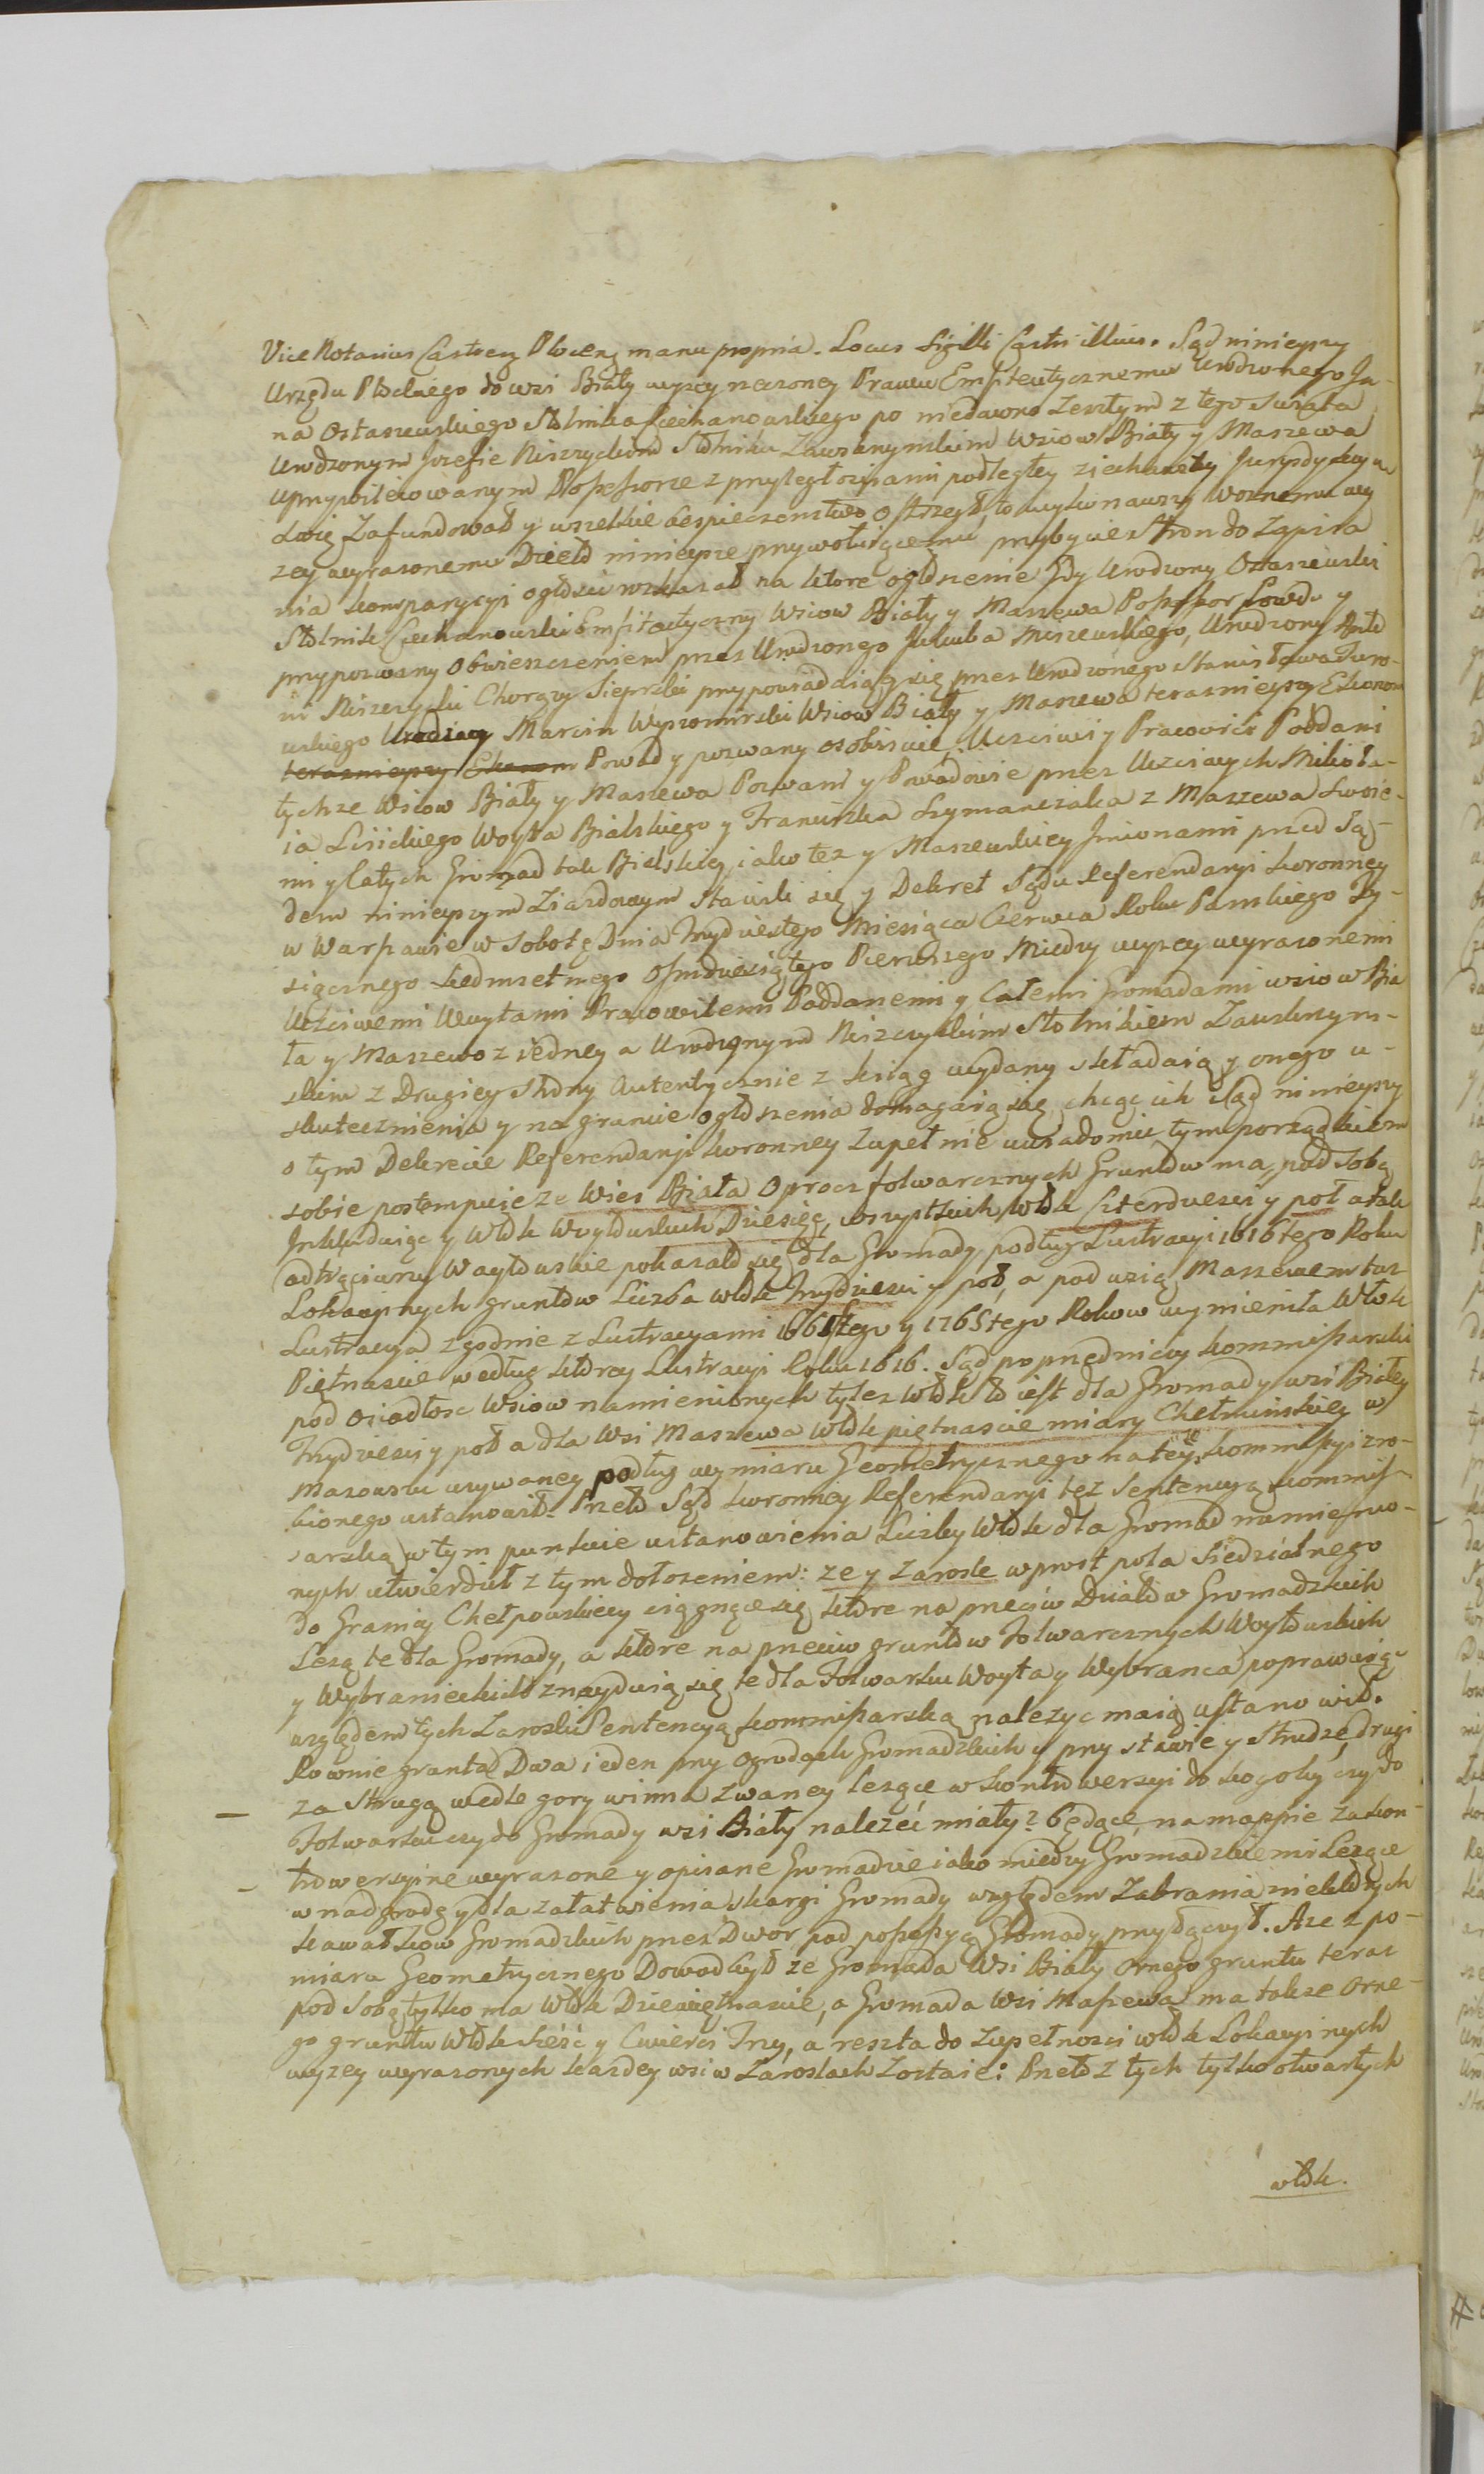 Vice Notarius Castren Plocen manu propria. Locus Sigilli Castri illius. Sąd ninieyszy
Urzędu Płockiego do wsi Biały wyzey rzeczoney Prawem Emfiteutycznemu Urodzonego Ja-
na Ostaszewskiego Stolnika Ciechanowskiego po niedawno Zeszłym z tego świata
Urodzonym Jozefie Niszczyckim Stolniku Zawskrzynskim Wsiow Biały y Maszewa
uprzywileiowanym Possessorze z przyległościami podległey ziechawszy Jurysdykcyą
swoię Zafundował y wszelkie bespieczenstwo ostrzegł, to wykonawszy Woznemu wy
zey wyrazonemu Dzieło ninieysze przywołuiącemu przybycie Stron do Zapisa
nia komparycyi ogłosić roskazał na ktore ogłoszenie Gdy Urodzony Ostaszewski
Stolnik Ciechanowski Emfiteutyczny Wsiow Biały y Maszewa Possessor Powod y
przypozwany Obwieszczeniem przez Urodzonego Jakuba Miszewskiego, Urodzony Anto
ni Niszczycki Chorązy Sieprski przypowiadaiąc się przez Urodzonego Stanisława Turo-
wskiego Urodzony Marcin Wyszomirski Wsiow Biały y Maszewa terazniejszy Ekonom
terazniejszy Ekonom Powod y pozwany osobiscie, Uczciwi y Pracowici Poddani
tychze Wsiow Biały y Maszewa Pozwani y Powodowie przez Uczciwych Mikoła-
ia Lisickiego Woyta Bialskiego y Franciszka Szymanczaka z Maszewa Swoie-
mi y całych Gromad tak Bialskiey iako tez y Maszewskiey Jmionami przed Są-
dem ninieyszym Ziazdowym stawili się y Dekret Sądu Referendaryi koronney
w Warszawie w Sobotę Dnia Trzydziestego Miesiąca Czerwca Roku Panskiego Ty-
siącznego Siedmsetnego Osmdziesiątego Pierwszego Miedzy wyzey wyrazonemi
Uczciwemi Woytami Pracowitemi Poddanemi y Całemi Gromadami wsiow Bia
ła y Maszewo z iedney a Urodzonym Niszczyckim Stolnikiem Zawskrzyn-
skim z Drugiey strony Autentycznie z ksiąg wydany składaią y onego u-
skutecznienia y na gruncie ogłoszenia domagaią się, chcąc ich Sąd ninieyszy
o tym Dekrecie Referendaryi koronney Zupełnie uwiadomic tym porządkiem
sobie postempuie ze Wies Biała Oprocz folwarcznych Gruntow ma pod sobą
Jnkluduiąc y Włok Woytowskich Dziesięć, wszystkich Włok Czterdziesci y poł a tak
odtrąciwszy Woytowskie pokazało się dla Gromady podług Lustracyi 1616tego Roku
Lokacyinych gruntow Liczba włok Trzydziesci y poł, a pod wsią Maszewem taz
Lustracya zgodnie z Lustracyami 1661tego y 1765tego Rokow wymieniła Włok
Piętnascie według ktorey Lustracyi Roku 1616. Sąd poprzedniczy kommissarski
pod Osiadłosc Wsiow namienionych tylez Włok to iest dla Gromady wsi Białey
Trzydziesci y poł a dla Wsi Maszewa włok piętnascie miary Chełminskiey w
Mazowszu uzywaney podług wymiaru Geometrycznego na teyze kommissyi zro-
bionego ustanowił. Przeto Sąd koronney Referendaryi tęz Sentencyą kommis-
sarską w tym punkcie ustanowienia Liczby Włok dla Gromad namienio-
nych utwierdził z tym dołozeniem: ze y Zarosle wprost pola Siedzialnego
do Granicy Chełpowskiey ciągnące się ktore na przeciw Działow Gromadzkich
Lezą te dla Gromady, a ktore na przeciw gruntow Folwarcznych Woytowskich
y Wybranieckich znayduią się te dla Folwarku Woyta y Wybranca poprawuiąc
względem tych Zarosli Sentencyą kommissarską nalezyc maią ustanowił.
Rownie grunta Dwa ieden przy Ogrodach Gromadzkich y przy stawie y Strudze drugi
za Strugą wedle gory winna zwaney lezące w kontrowersyi do kogoby czy do
Folwarku czy do Gromady wsi Biały nalezéć miały? będące, na mappie za kon-
trowersyine wyrazone y opisane Gromadzie iako miedzy Gromadzkiemi Lezące
w nadgrodę y dla załatwienia skargi Gromady względem Zabrania niektorych
kawałkow Gromadzkich przez Dwor pod possessyą Gromady przyłączył. A ze z po-
miaru Geometrycznego Dowod był ze Gromada Wsi Biały Ornego gruntu teraz
pod sobą tylko ma Włok Dziewiętnascie, a Gromada Wsi Massewa ma takze Orne-
go gruntu Włok sześć y Cwierci Trzy, a reszta do Zupełnosci włok Lokacyinych
wyzey wyrazonych kazdey wsi w Zaroslach Zostaie: Przeto z tych tylko otwartych
włok.